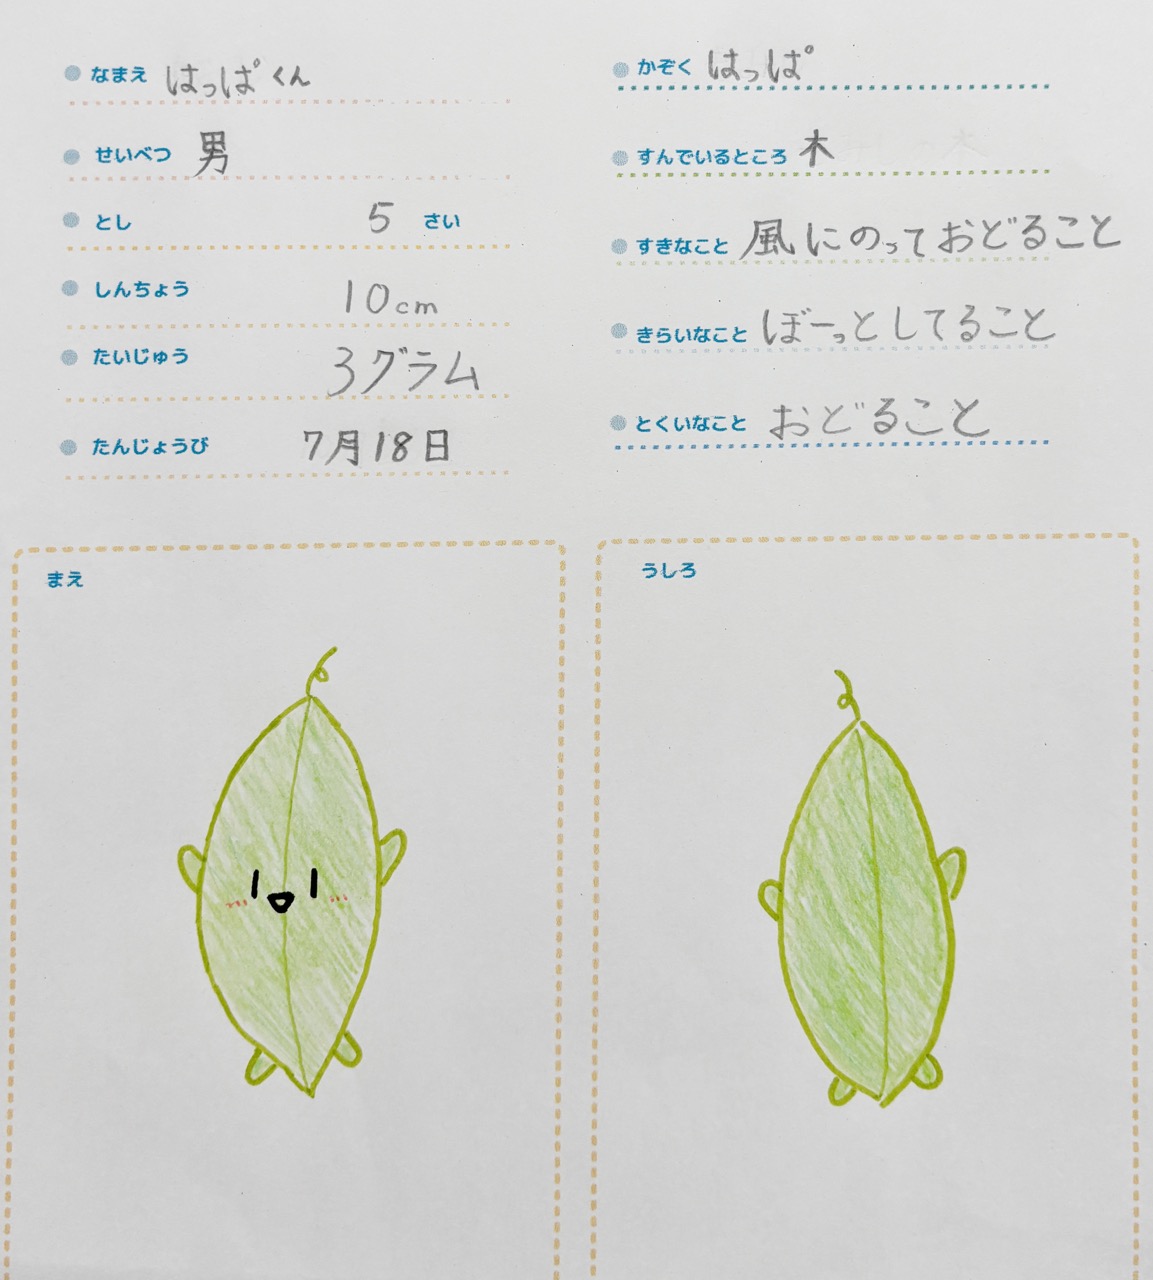 なまえ はっぱくん
せいべつ 男
とし 5 さい
しんちょう 10cm
たいじゅう 3グラム
たんじょうび 7月18日
かぞく はっぱ
すんでいるところ 木
すきなこと 風にのっておどること
きらいなこと ぼーっとしてること
とくいなこと おどること
まえ
うしろ